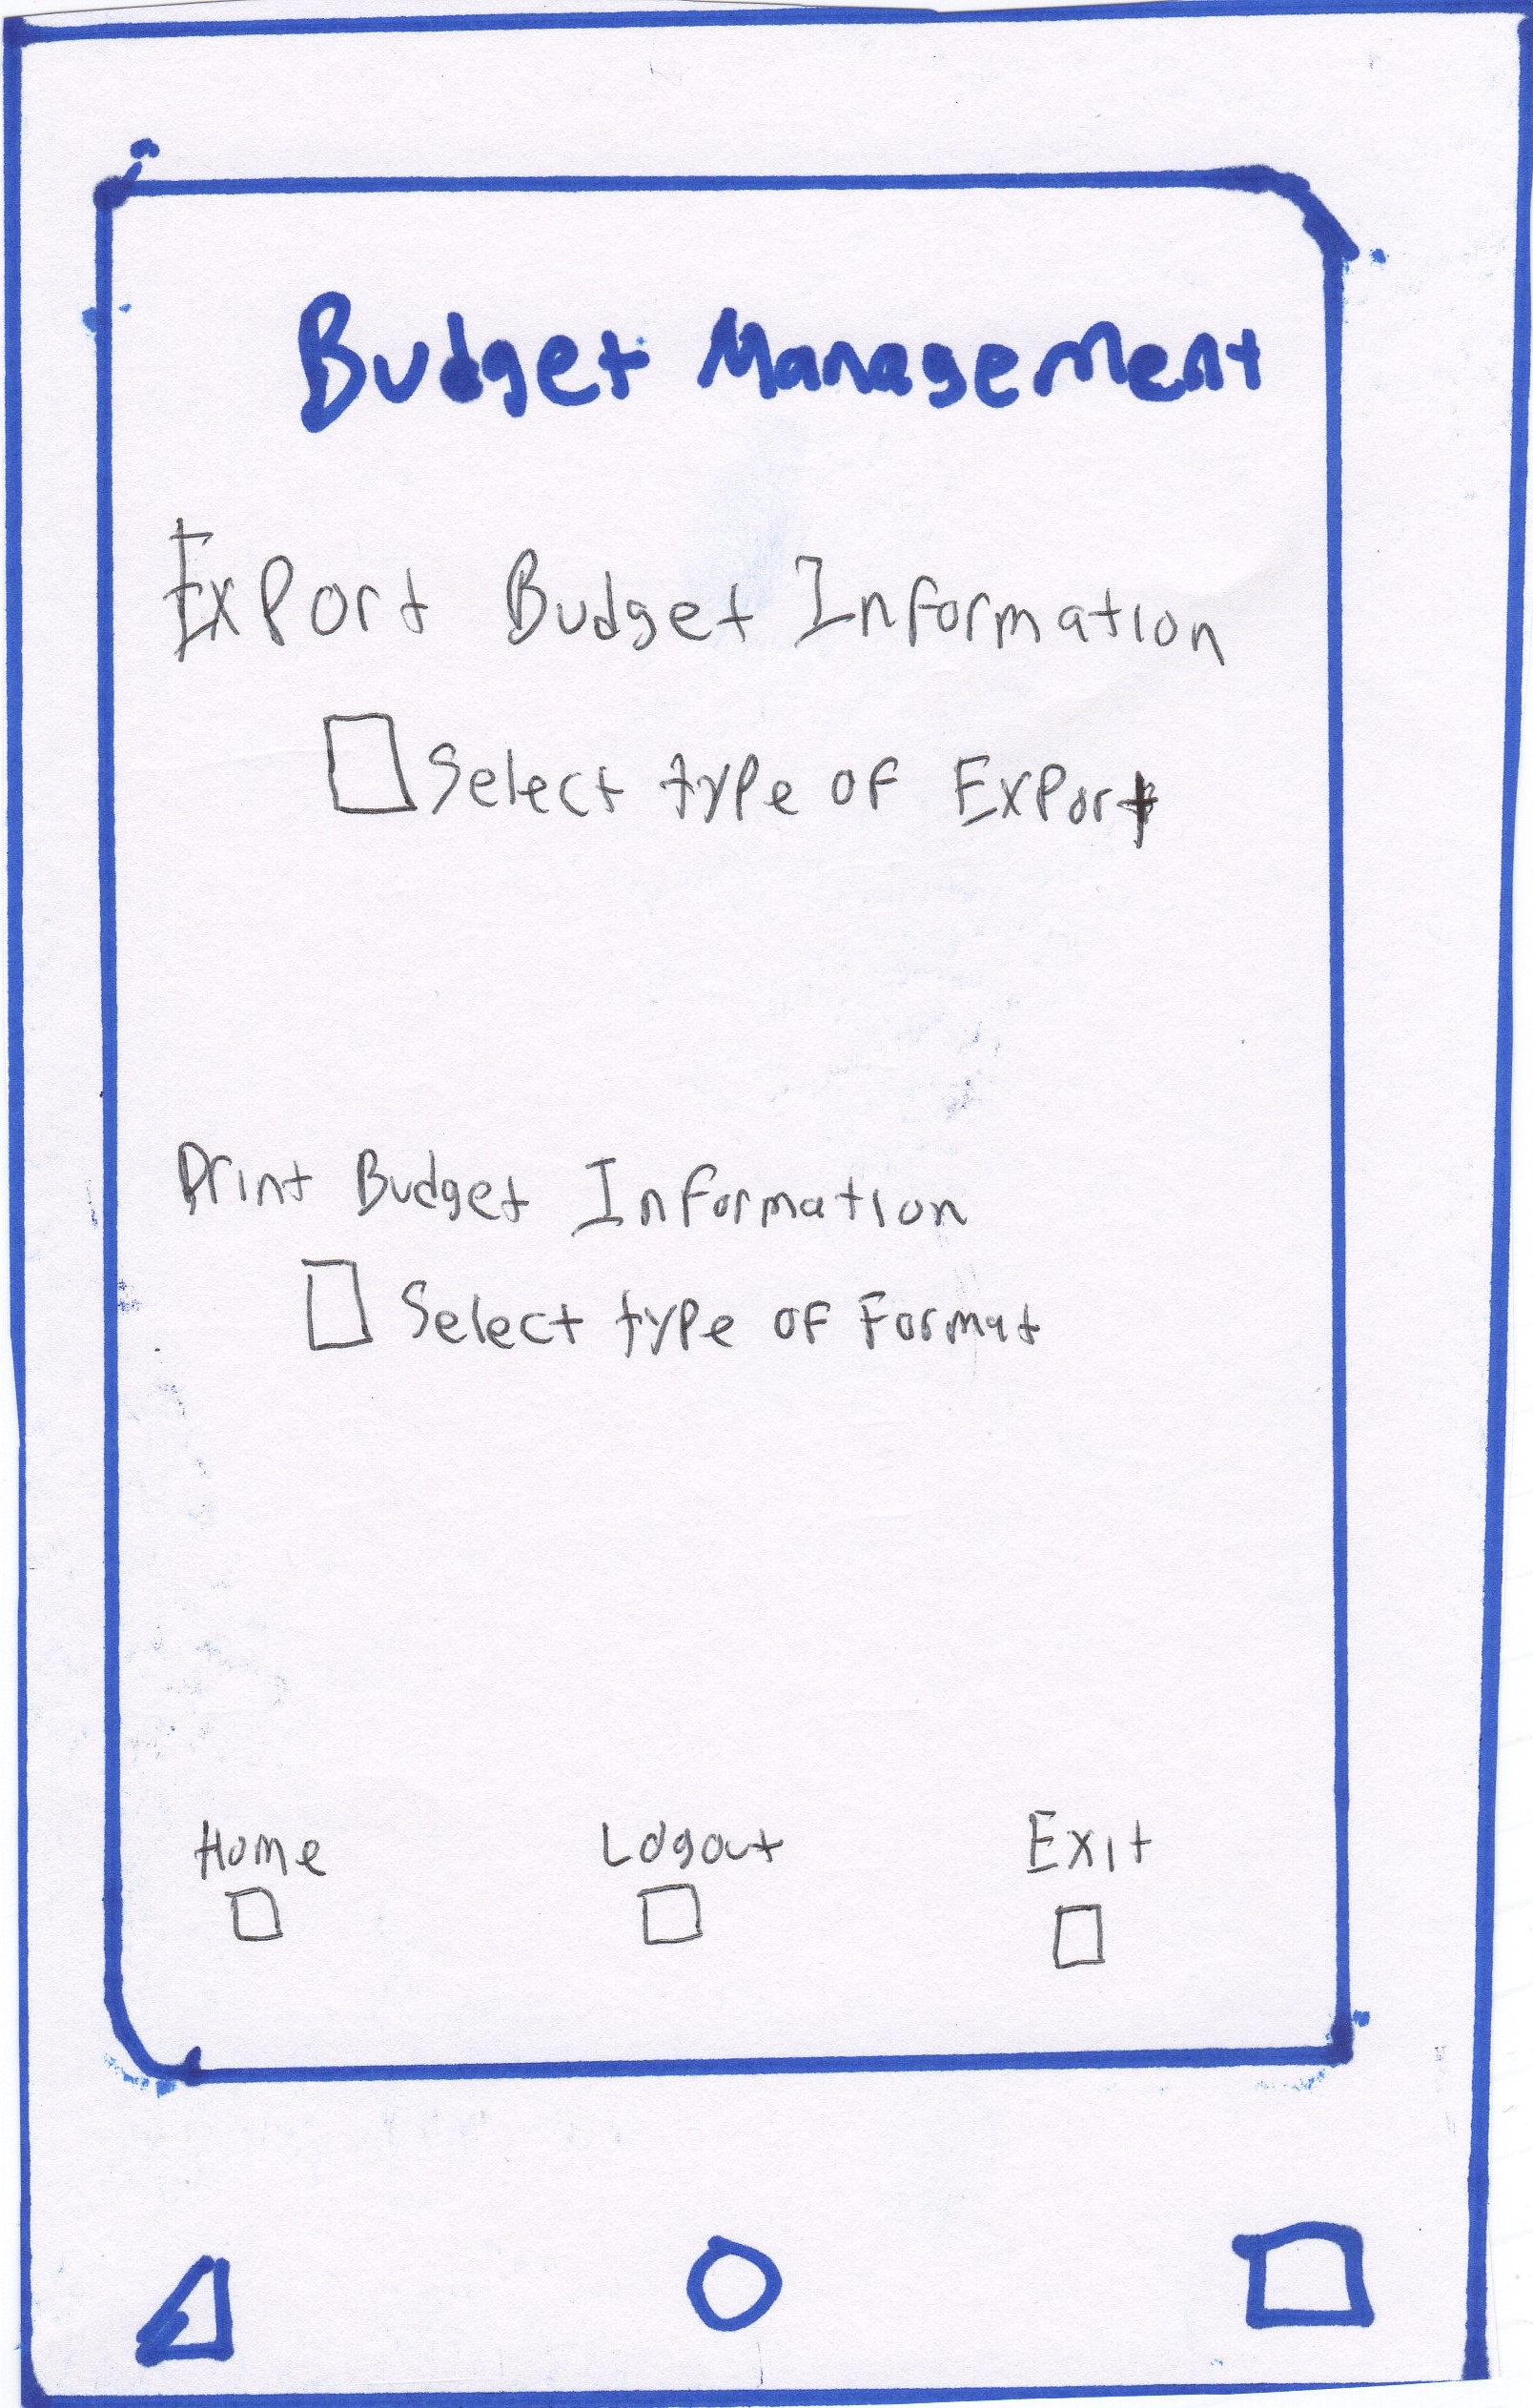 Budget Management
Export Budget Information
Select type of Export
Print Budget Information
Select type of Format
Home Logout Exit